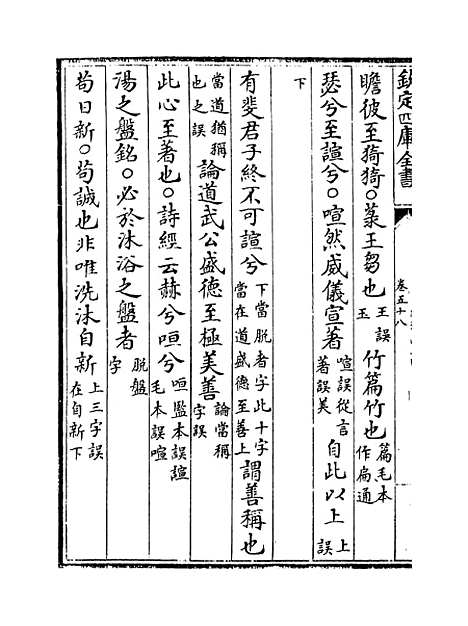 欽定四庫全書
卷五十八
瞻彼至猗猗○菉王芻也王誤玉竹篇竹也篇毛本作扁通
瑟兮至諠兮○喧然威儀宣著喧誤從言著誤美自此以上上誤
下
有斐君子終不可諠兮下當脫者字此十字當在道盛德至善上謂善稱也
當道猶稱也之誤論道武公盛德至極美善論當稱字誤
此心至著也○詩經云赫兮咺兮咺監本誤諠毛本誤喧
湯之盤銘○必於沐浴之盤者脫盤字
苟日新○苟誠也非唯洗沐自新上三字誤在自新下